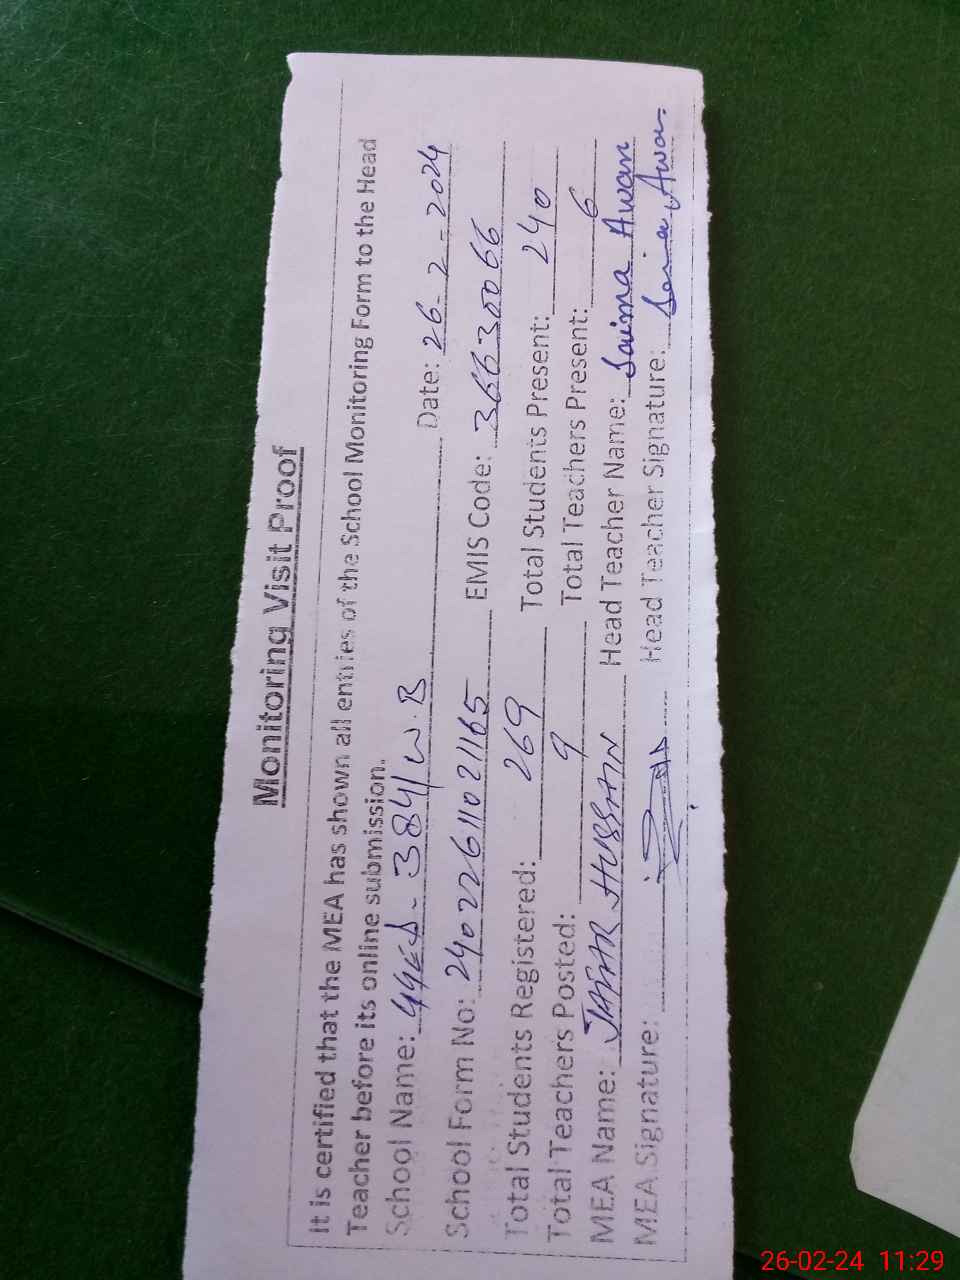 Monitoring Visit Proof
It is certified that the MEA has shown all entries of the School Monitoring Form to the Head
Teacher before its online submission.
School Name: 384/W.B Date: 26-2-2024
School Form No: 24022611021165 EMIS Code: 36630066
Total Students Registered: 269 Total Students Present: 240
Total Teachers Posted: 9 Total Teachers Present: 6
MEA Name: JAFAR HUSSAIN Head Teacher Name: Saima Awan
MEA Signature: Head Teacher Signature: Awan
26-02-24 11:29